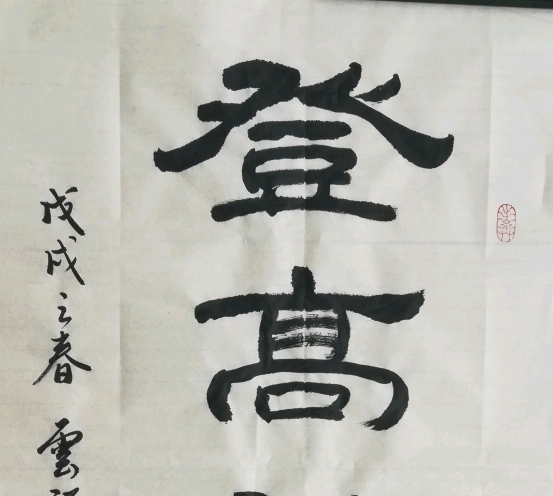 登高
戊戌之春 雲